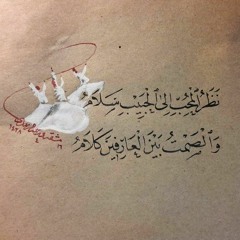 نَظَرُ الْمُحِبِّ إِلَى الْحَبِيبِ سَلَامٌ
وَالصَّمْتُ بَيْنَ الْعَارِفِينَ كَلَامٌ